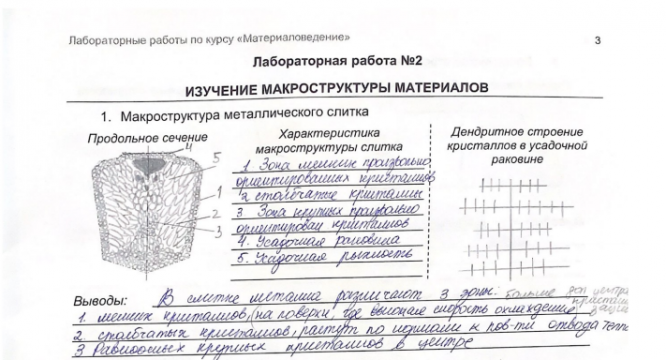 Лабораторные работы по курсу «Материаловедение»
3
Лабораторная работа №2
ИЗУЧЕНИЕ МАКРОСТРУКТУРЫ МАТЕРИАЛОВ
1. Макроструктура металлического слитка
Продольное сечение
4
5
1
2
3
Характеристика
макроструктуры слитка
1. Зона мелких произвольно
ориентированных кристаллов
2 столбчатые кристаллы
3 Зона крупных произвольно
ориентирован кристаллов
4. Усадочная раковина
5. Усадочная рыхлость
Дендритное строение
кристаллов в усадочной
раковине
Выводы: В слитке металла различают 3 зоны: больше
1. мелких кристаллов, (на поверхн, где высокая скорость охлаждения)
2. столбчатых кристаллов, растут по нормали к пов-ти отвода тепла
3 Равноосных крупных кристаллов в центре